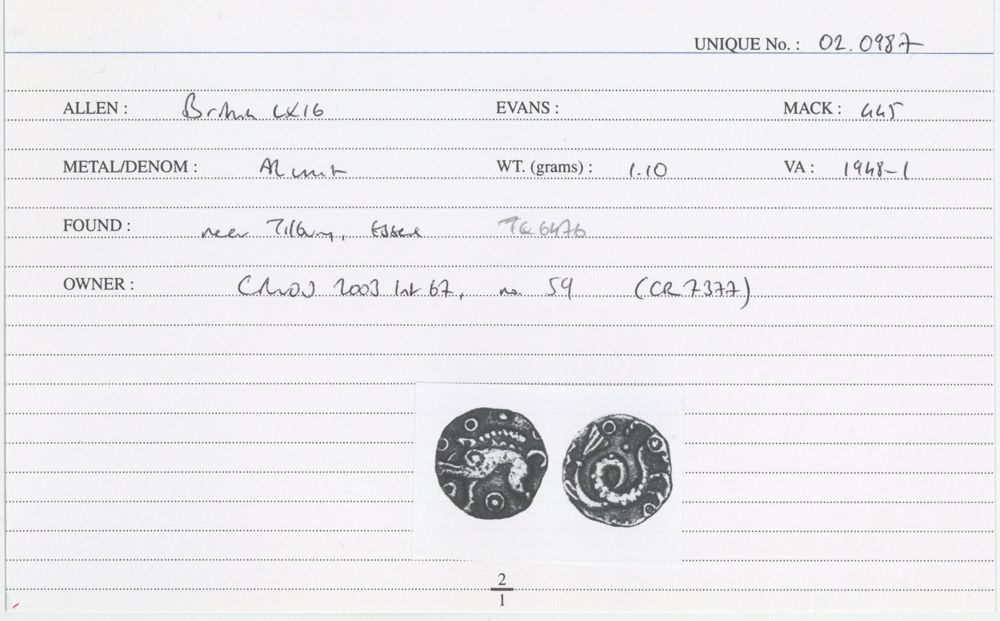 UNIQUE No. : 02.0987
ALLEN : British LX16 EVANS : MACK : 445
METAL/DENOM : AR unit WT. (grams) : 1.10 VA : 1948-1
FOUND : near Tilbury, Essex TQ6476
OWNER : 2003 list 67, no. 59 (CR7377)
2
1